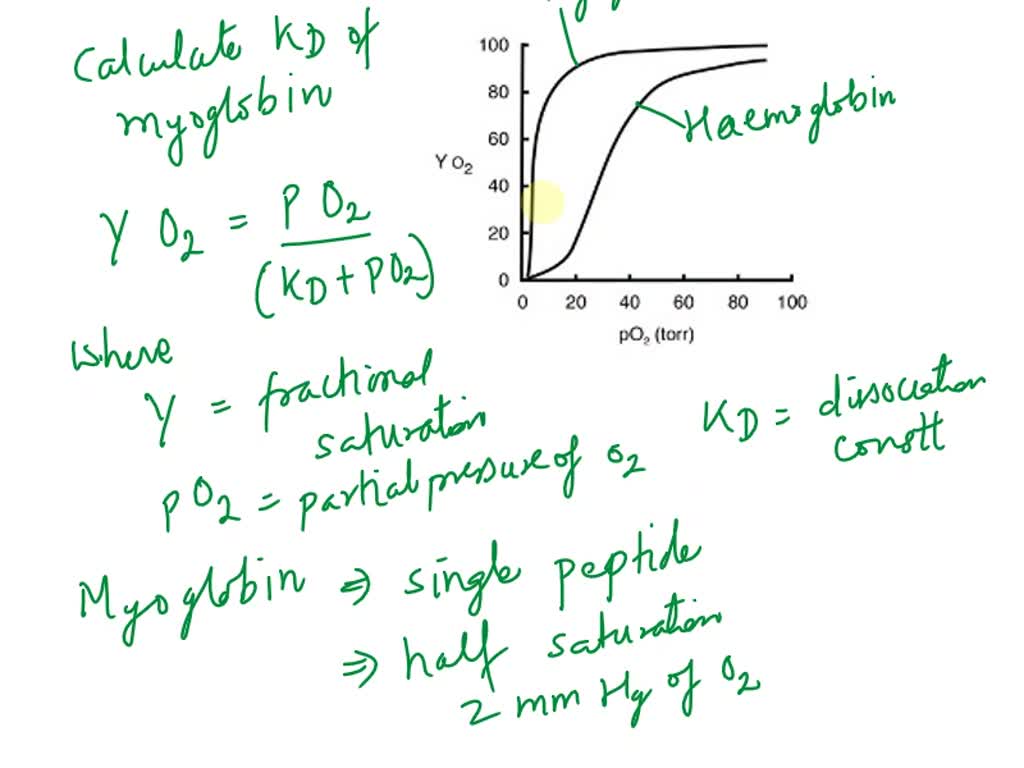 Calculate KD of
myoglobin
100
80
60
40
20
0
Y O2
0 20 40 60 80 100
pO2 (torr)
Haemoglobin
Y O2 = P O2
(KD + PO2)
where
Y = fractional
saturation
KD = dissociation
constt
PO2 = partial pressure of O2
Myoglobin ⇒ single peptide
⇒ half saturation
2 mm Hg of O2